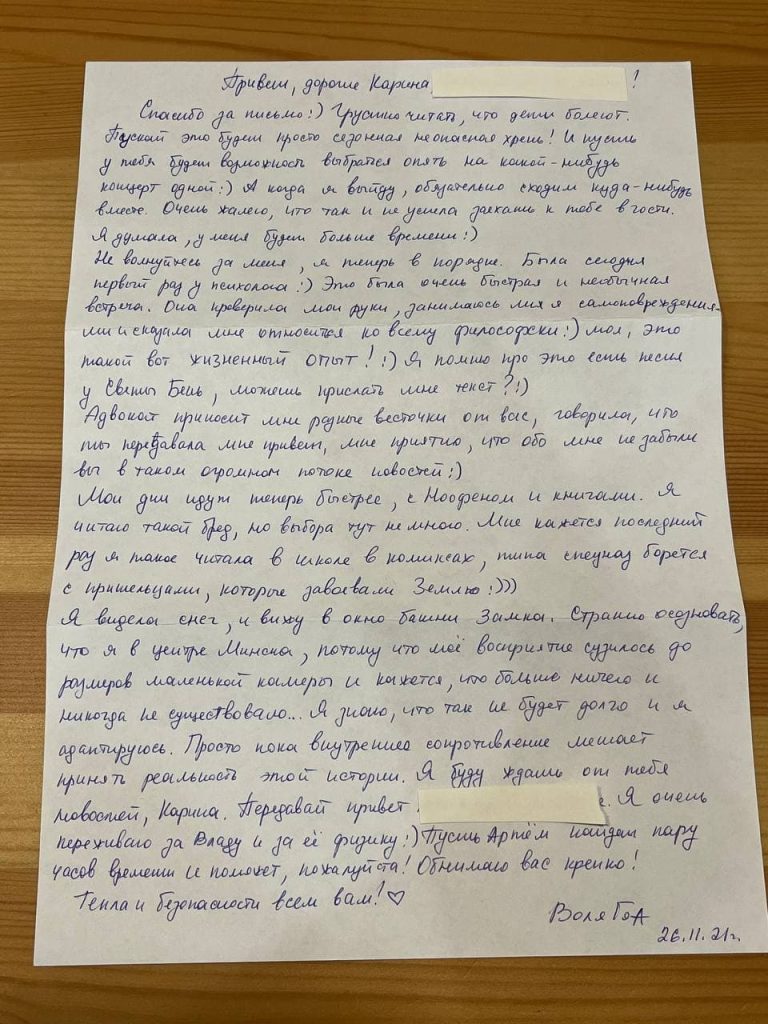 Привет, дорогие Карина !
Спасибо за письмо:) Грустно читать, что дети болеют.
Пускай это будет просто сезонная неопасная хрень! И пусть
у тебя будет возможность выбраться опять на какой-нибудь
концерт одной:) А когда я выйду, обязательно сходим куда-нибудь
вместе. Очень жалею, что так и не успела заехать к тебе в гости.
Я думала, у меня будет больше времени:)
Не волнуйтесь за меня, я теперь в порядке. Была сегодня
первый раз у психолога:) Это была очень быстрая и необычная
встреча. Она проверила мои руки, занимаюсь ли я самоповреждения-
ми и сказала мне относится ко всему философски:) мол, это
такой вот жизненный опыт! :) Я помню про это есть песня
у Светы Бень, можешь прислать мне текст?:)
Адвокат приносит мне разные весточки от вас, говорила, что
ты передавала мне привет, мне приятно, что обо мне не забыли
вы в таком огромном потоке новостей:)
Мои дни идут теперь быстрее, с Ноофеном и книгами. Я
читаю такой бред, но выбора тут не много. Мне кажется последний
раз я такое читала в школе в комиксах, типа спецназ борется
с пришельцами, которые завоевали Землю:)))
Я видела снег, и вижу в окно башни Замка. Странно осозновать,
что я в центре Минска, потому что моё восприятие сузилось до
размеров маленькой камеры и кажется, что больше ничего и
никогда не существовало... Я знаю, что так не будет долго и я
адаптируюсь. Просто пока внутреннее сопротивление мешает
принять реальность этой истории. Я буду ждать от тебя
новостей, Карина. Передавай привет . Я очень
переживаю за Владу и за её физику:) Пусть Артём найдет пару
часов времени и поможет, пожалуйста! Обнимаю вас крепко!
Тепла и безопасности всем вам! ♡
Воля
26.11.21г.